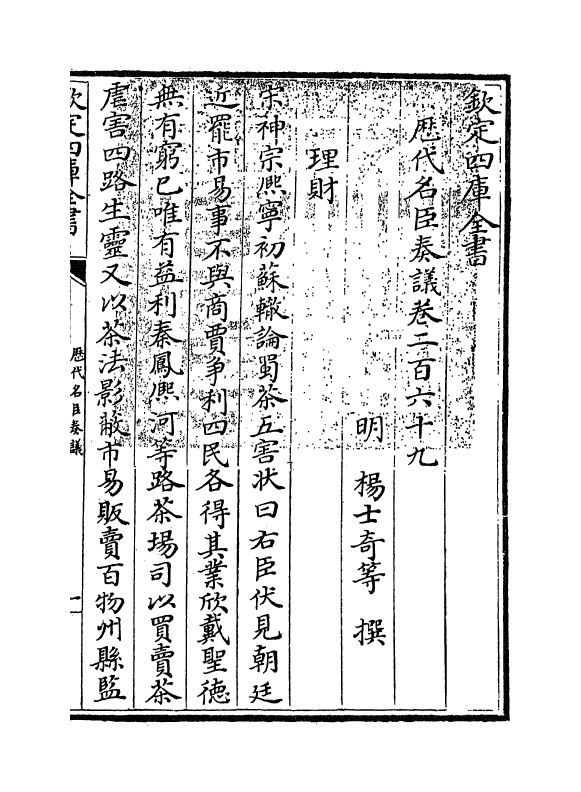 欽定四庫全書
歴代名臣奏議卷二百六十九
明 楊士奇等 撰
理財
宋神宗熙寧初蘇轍論蜀茶五害狀曰右臣伏見朝廷
近罷市易事不與商賈争利四民各得其業欣戴聖德
無有窮已唯有益利秦鳳熙河等路茶場司以買賣茶
虐害四路生靈又以茶法影蔽市易販賣百物州縣監
欽定四庫全書
歴代名臣奏議
一